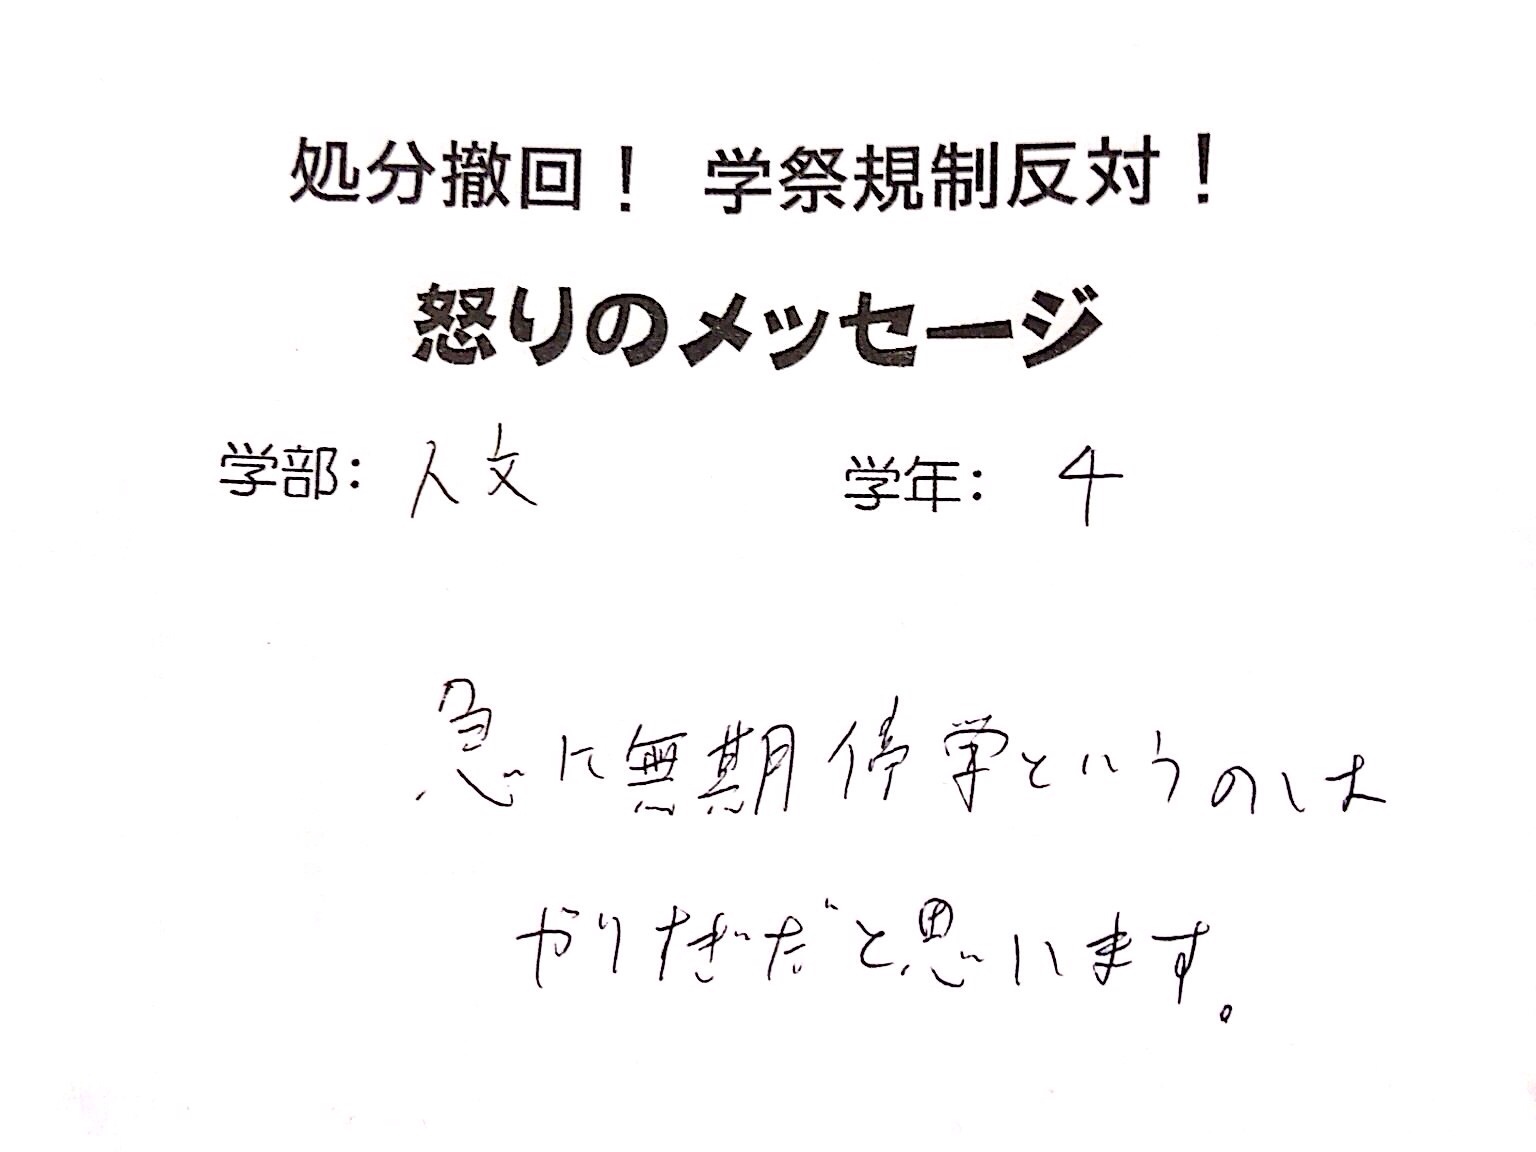 処分撤回！ 学祭規制反対！
怒りのメッセージ
学部: 人文 学年: 4
急に無期停学というのは
やりすぎだと思います。